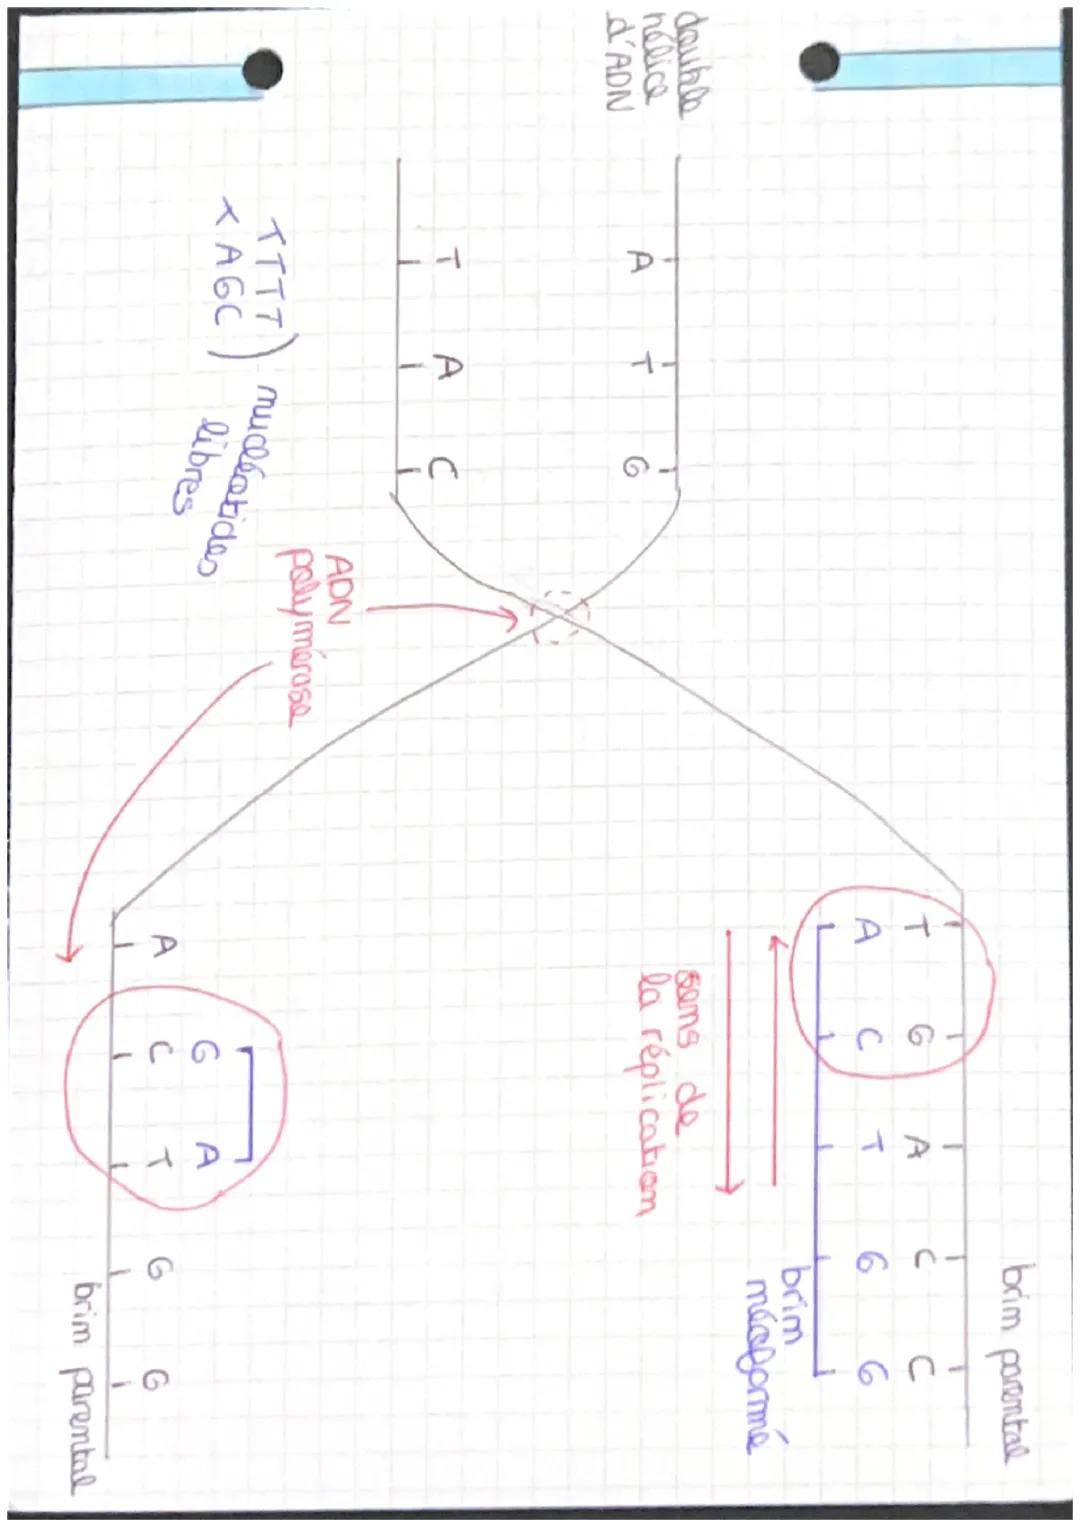 brin parental
T G A C C
A C T G G
brin
néoformé
sens de
la réplication
double
hélice
d'ADN
A T G
T A C
ADN
polymérase
TTTT
AGC
nucléotides
libres
G A
A C T G G
brin parental